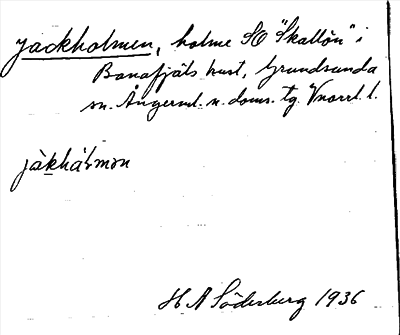 Jackholmen, holme SO "Skallön" i
Banafjäls kust, Grundsunda
sn. Ångerml. n. doms. tg. Vnorrl. l.
jàkhál̥mən
H A Söderberg 1936